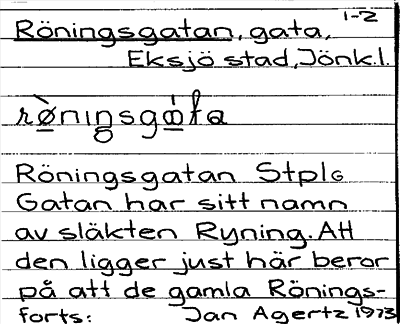 1-2
Röningsgatan, gata,
Eksjö stad, Jönk.l.
rø̀niŋsgɷ́ta
Röningsgatan Stpl G
Gatan har sitt namn
av släkten Ryning. Att
den ligger just här beror
på att de gamla Rönings-
forts: Jan Agertz 1973